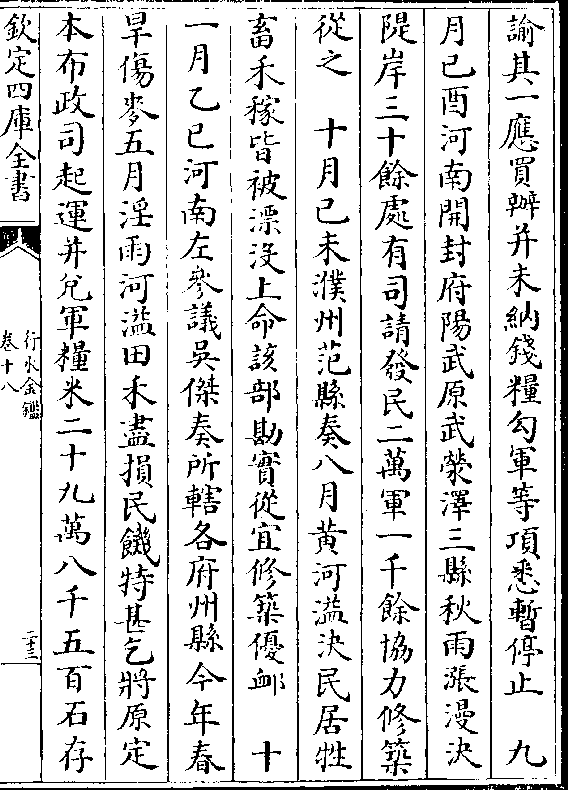 諭其一應買辦并未納錢糧勾軍等項悉暫停止　九
月己酉河南開封府陽武原武滎澤三縣秋雨漲漫決
隄岸三十餘處有司請發民二萬軍一千餘協力修築
從之　十月己未濮州范縣奏八月黃河溢決民居牲
畜禾稼皆被漂沒上命該部勘實從宜修築優卹　十
一月乙巳河南左參議吳傑奏所轄各府州縣今年春
旱傷麥五月淫雨河溢田禾盡損民饑特甚乞將原定
本布政司起運并兌軍糧米二十九萬八千五百石存
欽定四庫全書
行水金鑑
卷十八
二十三